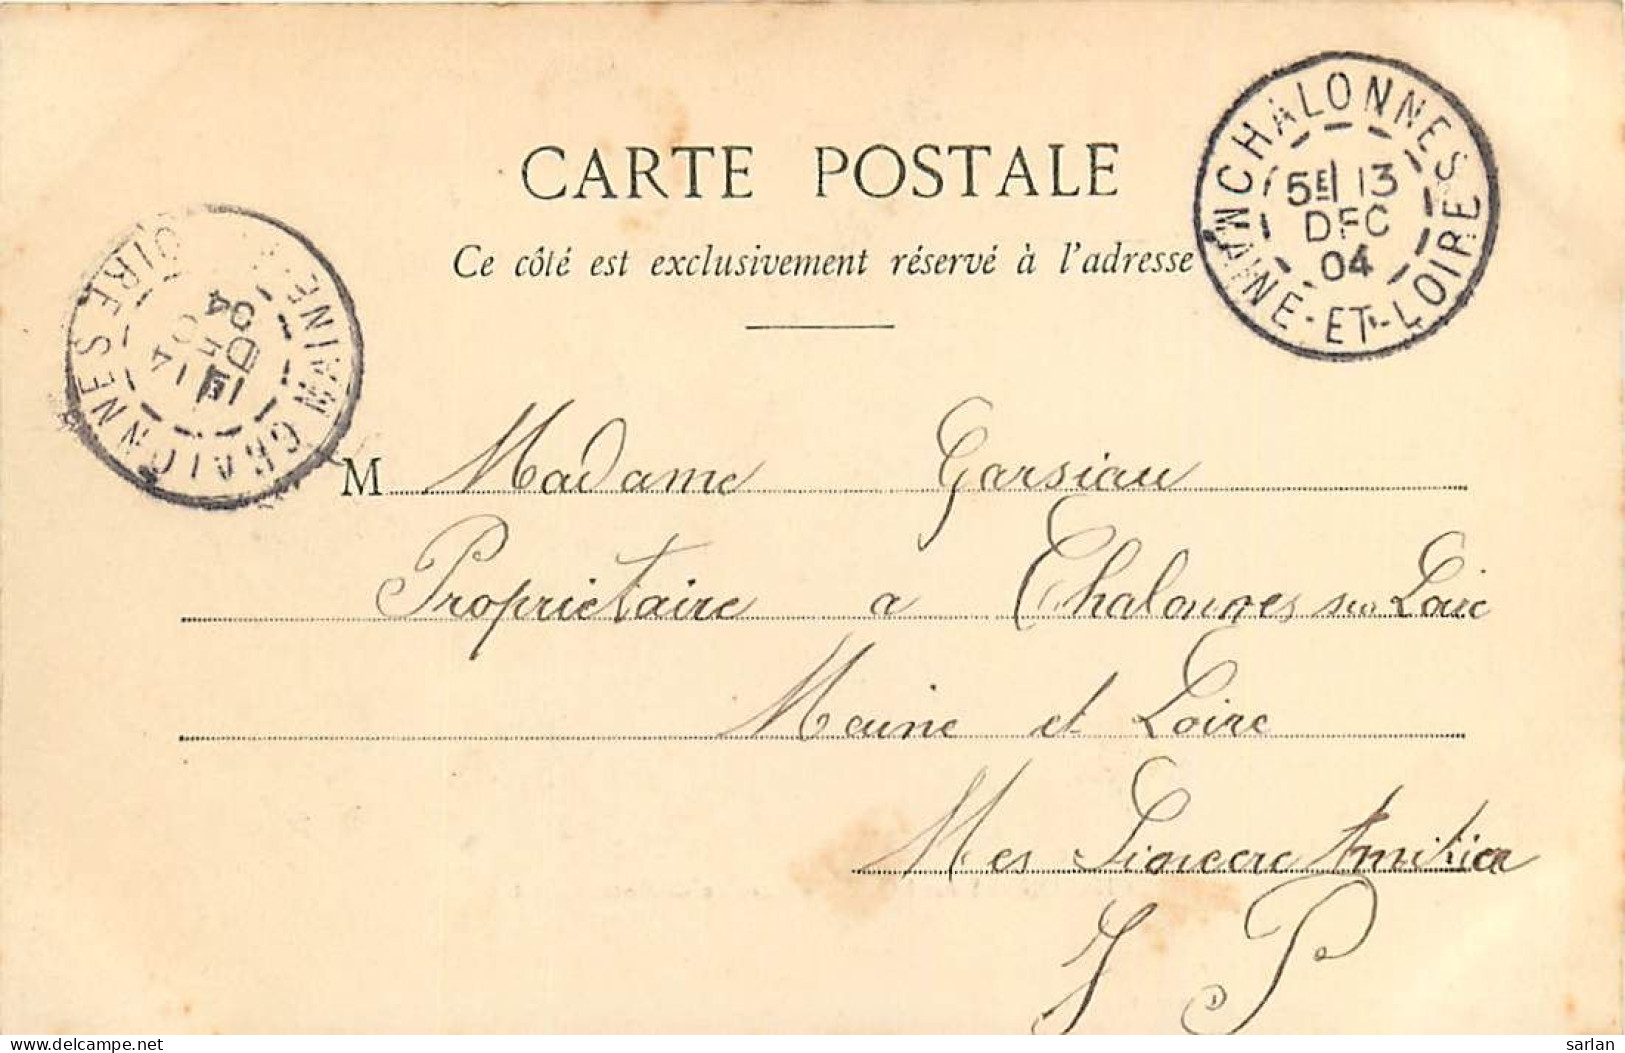 CARTE POSTALE
Ce côté est exclusivement réservé à l'adresse
CHALONNES
MAINE-ET-LOIRE
5E 13
DEC
04
CHALONNES
MAINE
LOIRE
04
M Madame Garsiau
Proprietaire a Chalonnes sur Loire
Maine et Loire
Mes Sincere Amitier
J P
delcampe.net
sarlan